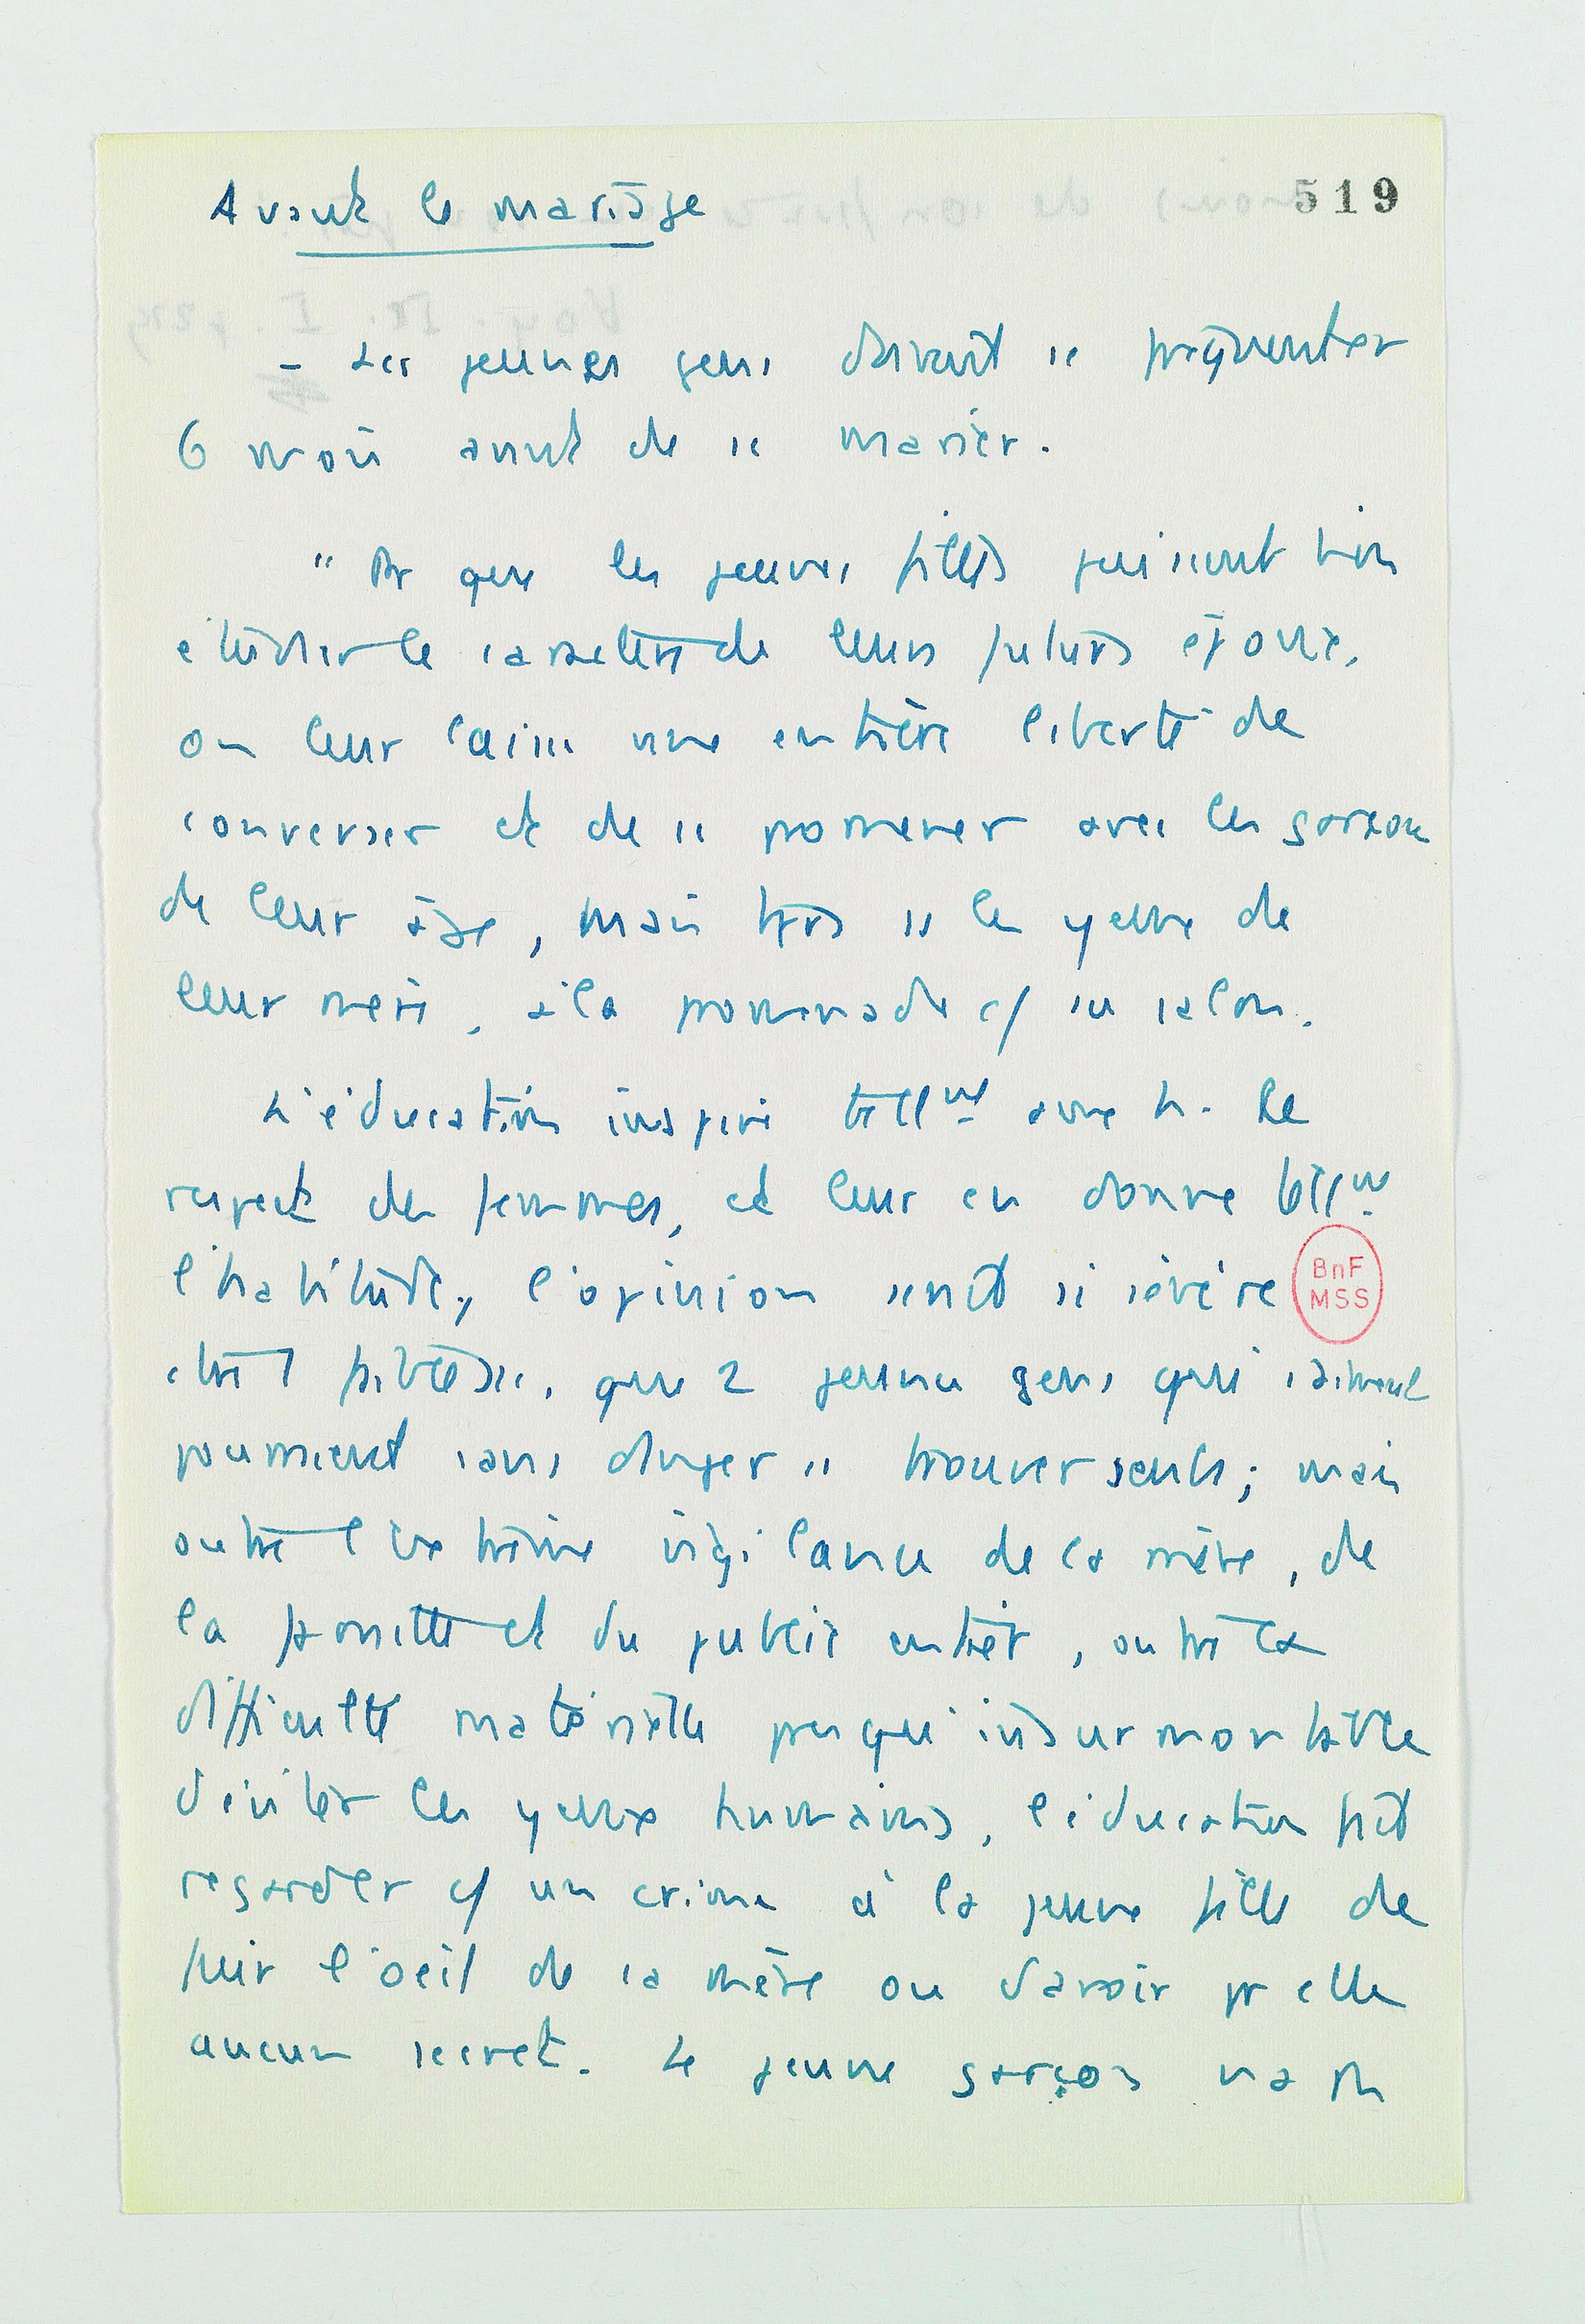 519
Avant le mariage
- Les jeunes gens doivent se fréquenter
6 mois avant de se marier.
" Pr que les jeunes filles puissent bien
étudier le caractère de leurs futurs époux,
on leur laisse une entière liberté de
converser et de se promener avec les garçons
de leur âge, mais tjrs ss les yeux de
leur mère, à la promenade c/ au salon.
L'éducation inspire tellnt aux h. le
respect des femmes, et leur en donne tellnt
l'habitude, l'opinion serait si sévère
BnF
MSS
que 2 jeunes gens qui s'aiment
pourraient sans danger se trouver seuls ; mais
outre l'extrême vigilance de la mère, de
la et du public entier, outre la
difficulté matérielle presqu'insurmontable
d'éviter les yeux humains, l'éducation fait
regarder c/ un crime à la jeune fille de
fuir l'oeil de sa mère ou d'avoir pr elle
aucun secret. Le jeune garçon n'a pas